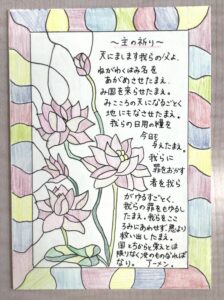 ～主の祈り～
天にまします我らの父よ、
ねがわくはみ名を
あがめさせたまえ。
み国を来らせたまえ。
みこころの天になるごとく
地にもなさせたまえ。
我らの日用の糧を
今日も
与えたまえ。
我らに
罪をおかす
者を我らが
ゆるすごとく、
我らの罪をもゆるし
たまえ。我らをここ
ろみにあわせず、悪より
救い出したまえ。
国とちからと栄えとは
限りなく汝のものなれば
なり。アーメン。